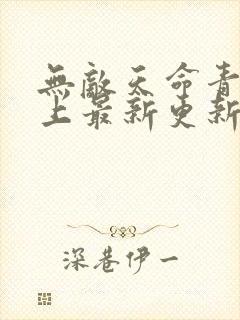 無敵天命青
上最新更新
深巷伊一